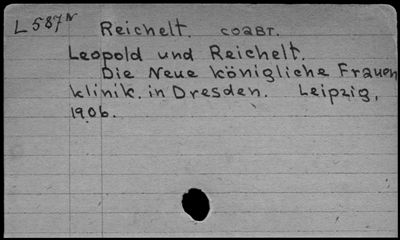 L 587 N Reichelt. соавт.
Leopold und Reichelt.
Die Neue königliche Frauen
klinik. in Dresden. Leipzig,
1906.